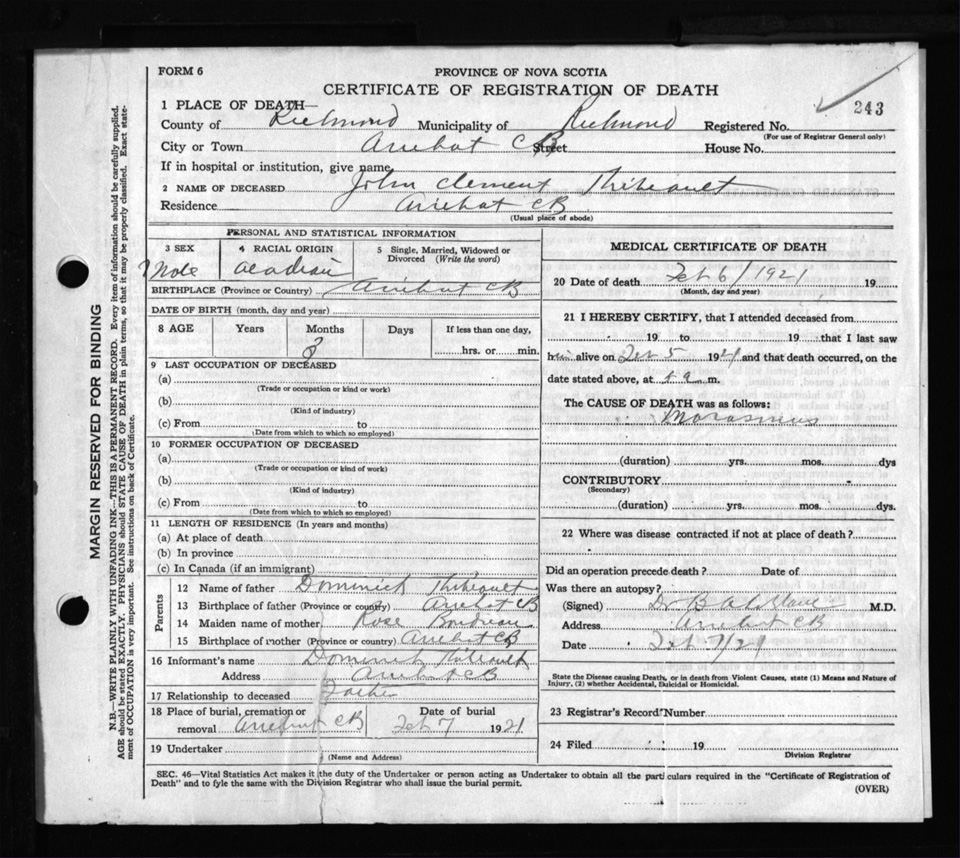 FORM 6
PROVINCE OF NOVA SCOTIA
CERTIFICATE OF REGISTRATION OF DEATH
243
1 PLACE OF DEATH—
County of Richmond Municipality of Richmond Registered No.
(For use of Registrar General only)
City or Town Arichat CB Street House No.
If in hospital or institution, give name
2 NAME OF DECEASED John Clement Thibeault
Residence Arichat CB
(Usual place of abode)
PERSONAL AND STATISTICAL INFORMATION
3 SEX 4 RACIAL ORIGIN 5 Single, Married, Widowed or Divorced (Write the word)
Male Acadian
BIRTHPLACE (Province or Country) Arichat CB
DATE OF BIRTH (month, day and year)
8 AGE Years Months Days If less than one day,
3 hrs. or min.
9 LAST OCCUPATION OF DECEASED
(a)
(Trade or occupation or kind of work)
(b)
(Kind of industry)
(c) From to
(Date from which to which so employed)
10 FORMER OCCUPATION OF DECEASED
(a)
(Trade or occupation or kind of work)
(b)
(Kind of industry)
(c) From to
(Date from which to which so employed)
11 LENGTH OF RESIDENCE (In years and months)
(a) At place of death
(b) In province
(c) In Canada (if an immigrant)
Parents
12 Name of father Dominick Thibeault
13 Birthplace of father (Province or county) Arichat CB
14 Maiden name of mother Rose Boudreau
15 Birthplace of mother (Province or country) Arichat CB
16 Informant's name Dominick Thibeault
Address Arichat CB
17 Relationship to deceased Father
18 Place of burial, cremation or removal Arichat CB Date of burial Feb 7 1921
19 Undertaker
(Name and Address)
MEDICAL CERTIFICATE OF DEATH
20 Date of death Feb 6/1921 19
(Month, day and year)
21 I HEREBY CERTIFY, that I attended deceased from
19 to 19 that I last saw
him alive on Feb 5 1921 and that death occurred, on the
date stated above, at a m.
The CAUSE OF DEATH was as follows:
Marasmus
(duration) yrs. mos. dys
CONTRIBUTORY
(Secondary)
(duration) yrs. mos. dys.
22 Where was disease contracted if not at place of death?
Did an operation precede death? Date of
Was there an autopsy?
(Signed) Dr B A M.D.
Address Arichat CB
Date Feb 7/21
State the Disease causing Death, or in death from Violent Causes, state (1) Means and Nature of
Injury, (2) whether Accidental, Suicidal or Homicidal.
23 Registrar's Record Number
24 Filed 19
Division Registrar
SEC. 46—Vital Statistics Act makes it the duty of the Undertaker or person acting as Undertaker to obtain all the particulars required in the "Certificate of Registration of
Death" and to fyle the same with the Division Registrar who shall issue the burial permit.
(OVER)
MARGIN RESERVED FOR BINDING
N.B.—WRITE PLAINLY WITH UNFADING INK—THIS IS A PERMANENT RECORD. Every item of information should be carefully supplied.
AGE should be stated EXACTLY. PHYSICIANS should STATE CAUSE OF DEATH in plain terms, so that it may be properly classified. Exact state-
ment of OCCUPATION is very important. See instructions on back of Certificate.